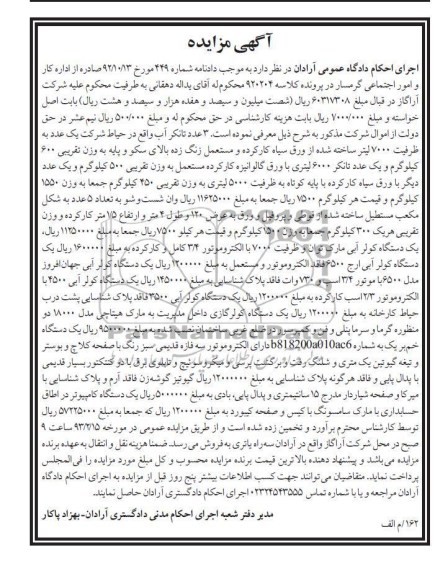 آگهی مزایده
اجرای احکام دادگاه عمومی آرادان در نظر دارد به موجب دادنامه شماره ۴۴۹ مورخ ۹۲/۱۰/۱۳ صادره از اداره کار
و امور اجتماعی گرمسار در پرونده کلاسه ۹۲۰۲۰۴ محکوم له آقای یداله دهقانی به طرفیت محکوم علیه شرکت
آراگاز در قبال مبلغ ۶۰۳۱۷۳۰۸ ریال (شصت میلیون و سیصد و هفده هزار و سیصد و هشت ریال) بابت اصل
خواسته و مبلغ ۷۰۰/۰۰۰ ریال بابت هزینه کارشناسی در حق محکوم له و مبلغ ۵۰۰/۰۰۰ ریال نیم عشر در حق
دولت از اموال شرکت مذکور به شرح ذیل معرفی نموده است. ۳ عدد تانکر آب واقع در حیاط شرکت یک عدد به
ظرفیت ۷۰۰۰ لیتر ساخته شده از ورق سیاه کارکرده و مستعمل زنگ زده بالای سکو و پایه به وزن تقریبی ۶۰۰
کیلوگرم و یک عدد تانکر ۶۰۰۰ لیتری با ورق گالوانیزه کارکرده مستعمل به وزن تقریبی ۵۰۰ کیلوگرم و یک عدد
دیگر با ورق سیاه کارکرده با پایه کوتاه به ظرفیت ۵۰۰۰ لیتری به وزن تقریبی ۴۵۰ کیلوگرم جمعا به وزن ۱۵۵۰
کیلوگرم و قیمت هر کیلوگرم ۷۵۰۰ ریال جمعا به مبلغ ۱۱۶۲۵۰۰۰ ریال وان شست و شو به تعداد ۵ عدد به شکل
مکعب مستطیل ساخته شده از قوطی و پروفیل و ورق به عرض ۱۲۰ و طول ۴ متر و ارتفاع ۱/۵ متر کارکرده و وزن
تقریبی هر یک ۳۰۰ کیلوگرم جمعا به وزن ۱۵۰۰ کیلوگرم و قیمت هر کیلو ۷۵۰۰ ریال جمعا به مبلغ ۱۱۲۵۰۰۰۰ ریال،
یک دستگاه کولر آبی مارک توان و ظرفیت ۷۰۰۰ با الکتروموتور ۳/۴ کامل و کارکرده به مبلغ ۱۶۰۰۰۰۰ ریال یک
دستگاه کولر آبی ارج ۶۵۰۰ فاقد الکتروموتور و مستعمل به مبلغ ۱۲۰۰۰۰۰ ریال یک دستگاه کولر آبی جهان افروز
مدل ۶۵۰۰ با موتور ۳/۴ اسب و ۷۳۰ وات فاقد پلاک شناسایی به مبلغ ۱۴۵۰۰۰۰ ریال یک دستگاه کولر آبی ۴۵۰۰ با
الکتروموتور ۲/۳ اسب کارکرده به مبلغ ۱۲۰۰۰۰۰ ریال یک دستگاه کولر آبی ۳۵۰۰ فاقد پلاک شناسایی پشت درب
حیاط کارخانه به مبلغ ۱۲۰۰۰۰۰ ریال یک دستگاه کولر گازی داخل مدیریت به مارک هیتاچی مدل ۱۸۰۰۰ دو
منظوره گرما و سرما پنلی و فن و کمپرسور در ضلع غربی ساختمان نصب شده به مبلغ ۹۵۰۰۰۰۰ ریال یک دستگاه
خم بر یک به شماره b818200a010ac6 دارای الکتروموتور سه فاز قدیمی سبز رنگ با صفحه کلاچ و بوستر
و تیغه گیوتین یک متری و شلنگ رفت و برگشت برسی و میکروسوئیچ و تابلوی برق با دو کنتکتور بسیار قدیمی
با پدال پایی و فاقد هرگونه پلاک شناسایی به مبلغ ۱۲۰۰۰۰۰۰ ریال گیوتیز گوشه زن فاقد آرم و پلاک شناسایی با
میز کار و صفحه شیاردار مدرج ۱۵ سانتیمتری و پدال پایی، بادی به مبلغ ۵۰۰۰۰۰۰ ریال یک دستگاه کامپیوتر در اطاق
حسابداری با مارک سامسونگ با کیس و صفحه کیبورد به مبلغ ۱۲۰۰۰۰۰ ریال که جمعا به مبلغ ۵۷۲۲۵۰۰۰ ریال
توسط کارشناس محترم برآورد و تخمین زده شده است و از طریق مزایده عمومی در مورخه ۹۳/۲/۱۵ ساعت ۹
صبح در محل شرکت آراگاز واقع در آرادان سه راه یاتری به فروش می رسد. ضمنا هزینه نقل و انتقال به عهده برنده
مزایده می باشد و پیشنهاد دهنده بالاترین قیمت برنده مزایده محسوب و کل مبلغ مورد مزایده را فی المجلس
پرداخت نماید. متقاضیان می توانند جهت کسب اطلاعات بیشتر پنج روز قبل از مزایده به اجرای احکام دادگاه
آرادان مراجعه و یا با شماره تماس ۰۲۳۲۴۵۴۳۵۵۵ اجرای احکام دادگستری آرادان حاصل نمایند.
مدیر دفتر شعبه اجرای احکام مدنی دادگستری آرادان- بهزاد پاکار
۱۶۲/م الف